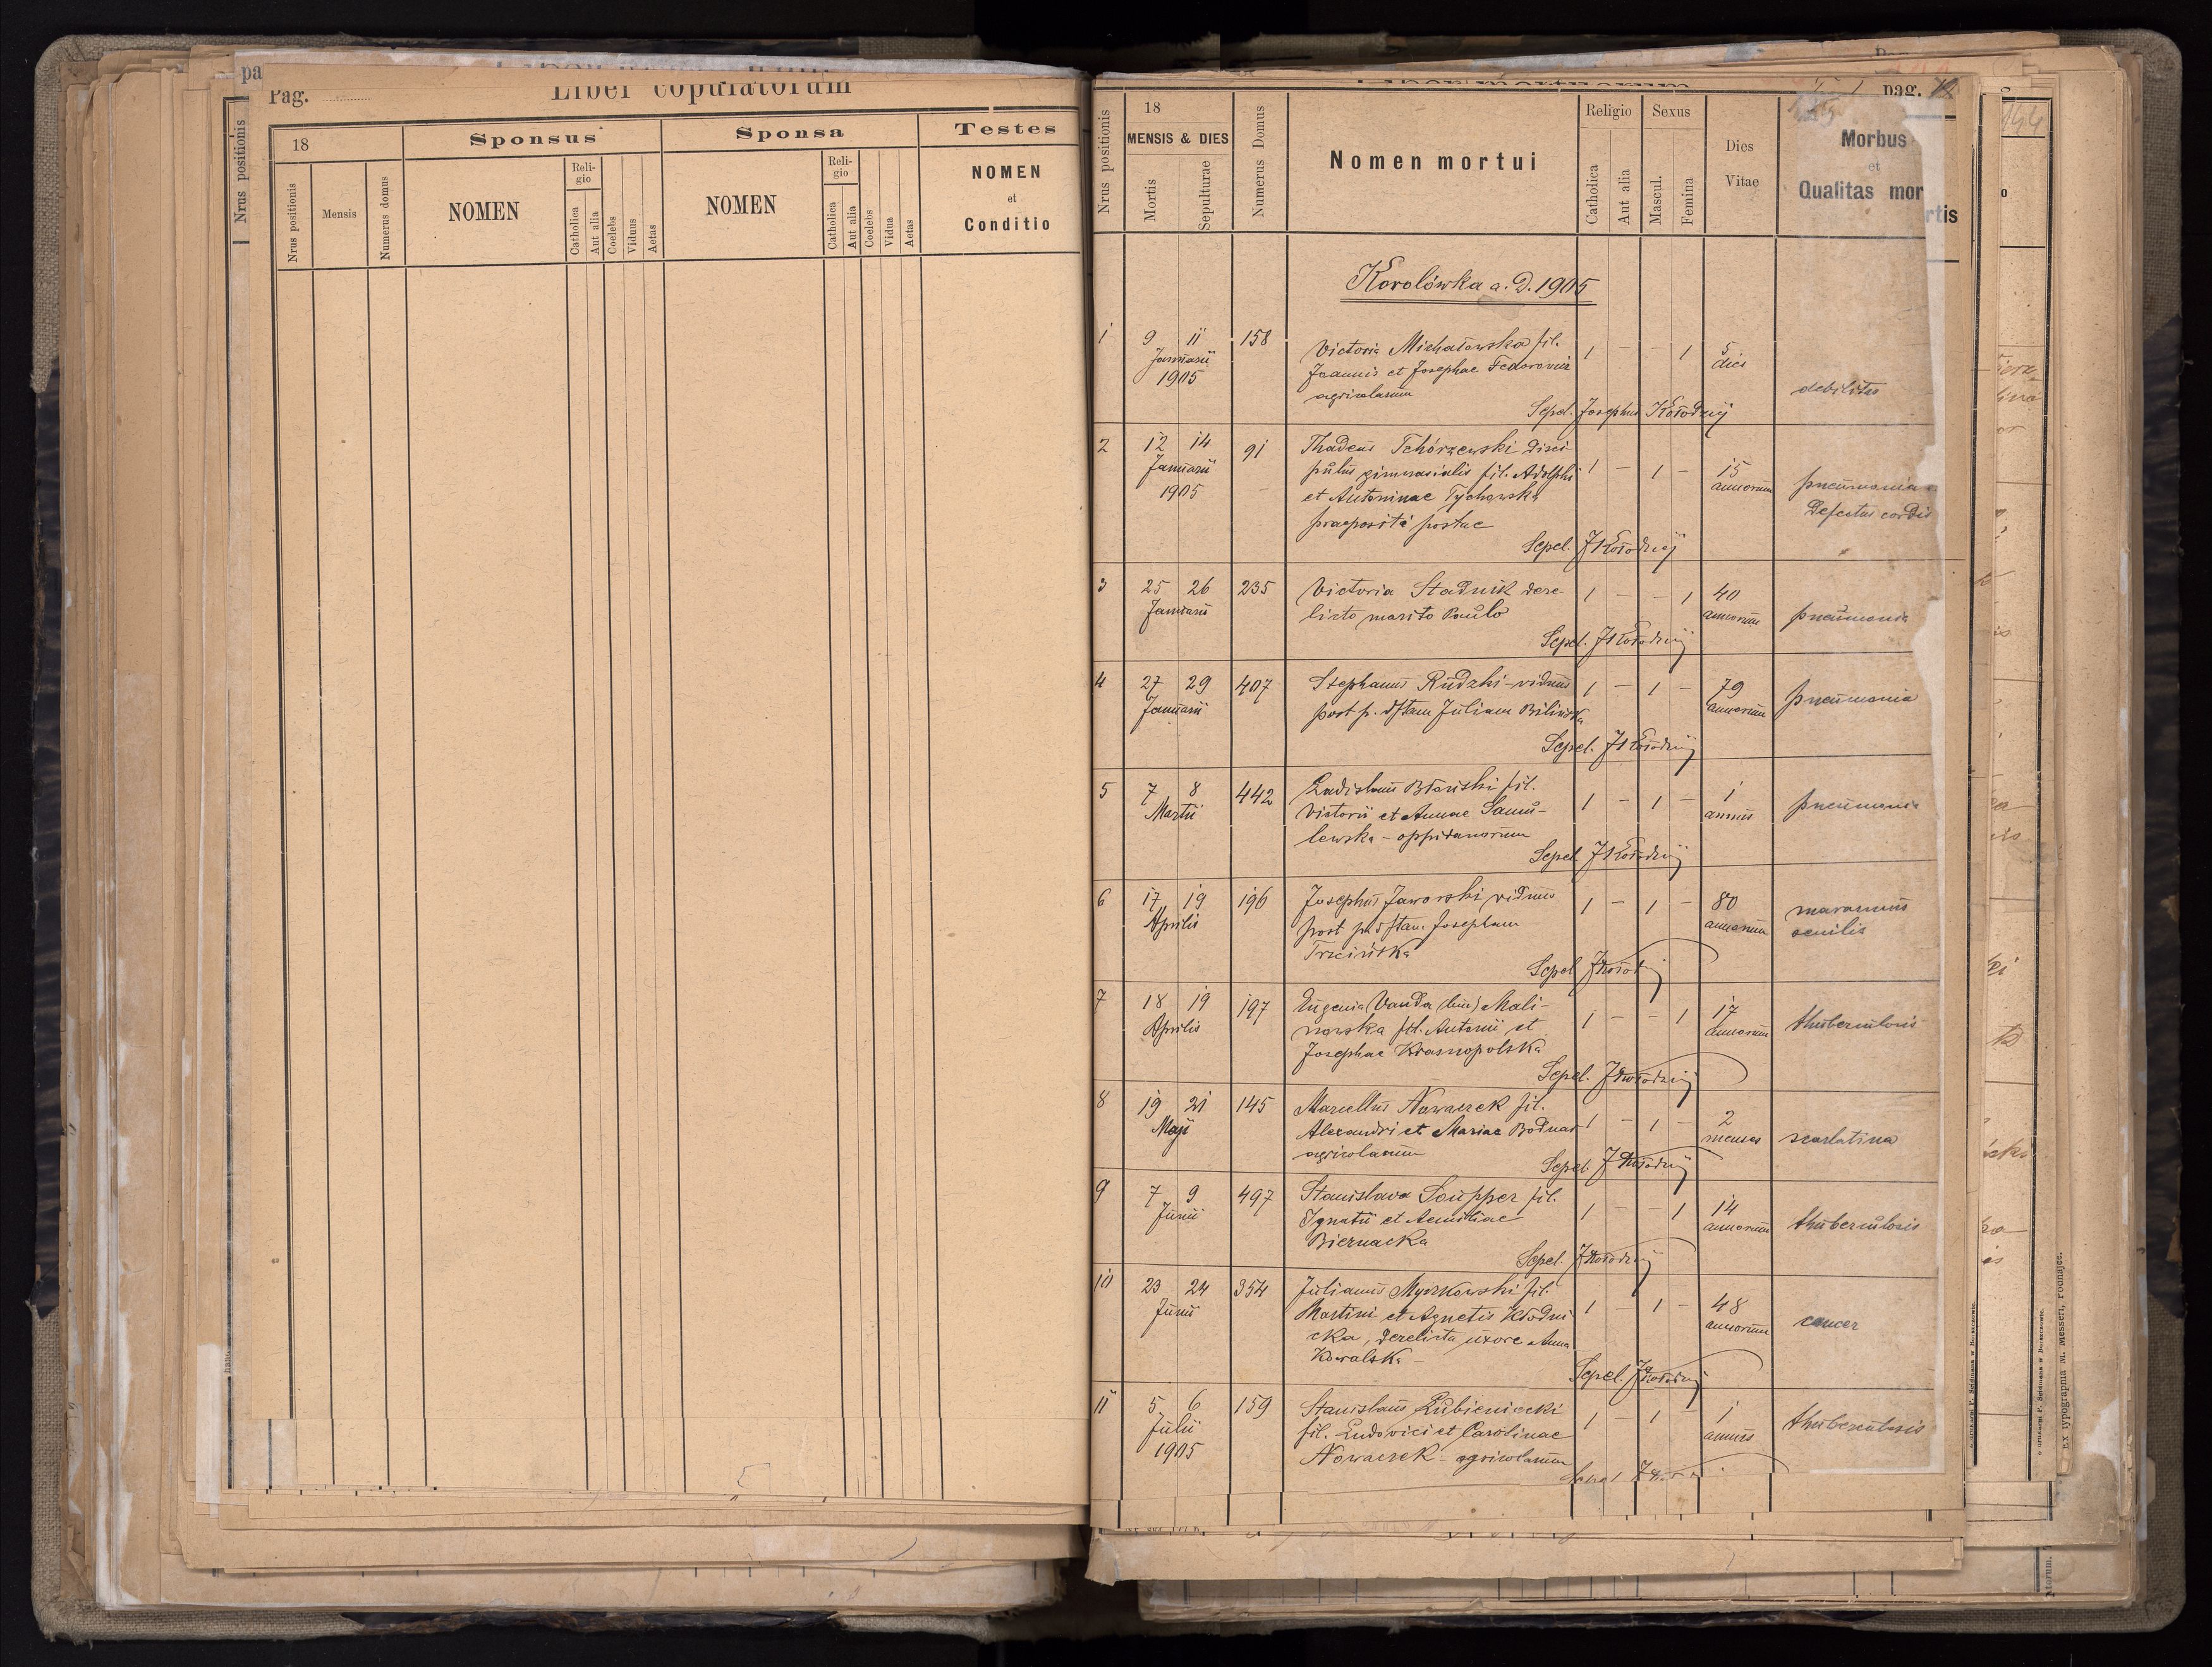 pa
Pag.
Liber copulatorum
Nrus positionis
18
Sponsus
Sponsa
Testes
Nrus positionis
Mensis
Numerus domus
NOMEN
Reli-
gio
Catholica
Aut alia
Coelebs
Viduus
Aetas
NOMEN
Reli-
gio
Catholica
Aut alia
Coelebs
Vidua
Aetas
NOMEN
et
Conditio
Liber mortuorum
pag.
Nrus positionis
18
MENSIS & DIES
Mortis
Sepulturae
Numerus Domus
Nomen mortui
Religio
Catholica
Aut alia
Sexus
Mascul.
Femina
Dies
Vitae
Morbus
et
Qualitas mor
rtis
Korolówka a. D. 1905
1 9 11 158 Victoria Michałowska fil. 1 - - 1 5
Januarii Joannis et Josephae Fedorowicz dies
1905 agricolarum debilitas
Sepel. Josephus Kołodziej
2 12 14 91 Thadeus Tchórzewski disci-
Januarii pulus gimnasialis fil. Adolphi 1 - 1 - 15
1905 et Antoninae Tychowska annorum pneumonia
praepositi postae Defectus cordis
Sepel. J Kołodziej
3 25 26 235 Victoria Stadnik dere- 1 - - 1 40
Januarii licto marito Paulo annorum pneumonia
Sepel. J Kołodziej
4 27 29 407 Stephanus Rudzki - viduus 1 - 1 - 79
Januarii post p. dftam Juliam Bilińska annorum pneumonia
Sepel. J Kołodziej
5 7 8 442 Ladislaus Błoński fil. 1 - 1 - 1
Martii Victorii et Annae Samu- annus pneumonia
lewska - oppidanorum
Sepel J Kołodziej
6 17 19 196 Josephus Jaworski viduus 1 - 1 - 80
Aprilis post p. dftam Josepham annorum marasmus
Trzcińska senilis
Sepel J Kołodziej
7 18 19 197 Eugenia Vanda (bin) Mali- 1 - - 1 17
Aprilis nowska fil. Antonii et annorum thuberculosis
Josephae Krasnopolska
Sepel. J Kołodziej
8 19 21 145 Marcellus Nowaczek fil.
Maji Alexandri et Mariae Bodnar 1 - 1 - 2
agricolarum menses scarlatina
Sepel. J Kołodziej
9 7 9 497 Stanislava Soupper fil. 1 - - 1 14
Junii Ignatii et Aemiliae annorum thuberculosis
Biernacka
Sepel. J Kołodziej
10 23 24 354 Julianus Myszkowski fil. 1 - 1 - 48
Junii Martini et Agnetis Kłodni- annorum cancer
cka, derelicta uxore Anna
Kowalska -
Sepel. J Kołodziej
11 5 6 159 Stanislaus Lubieniecki 1 - 1 - 1
Julii fil. Ludovici et Carolinae annus thuberculosis
1905 Nowaczek agricolarum
Sepel
Ex typographia M. Messeri, rodnajec.